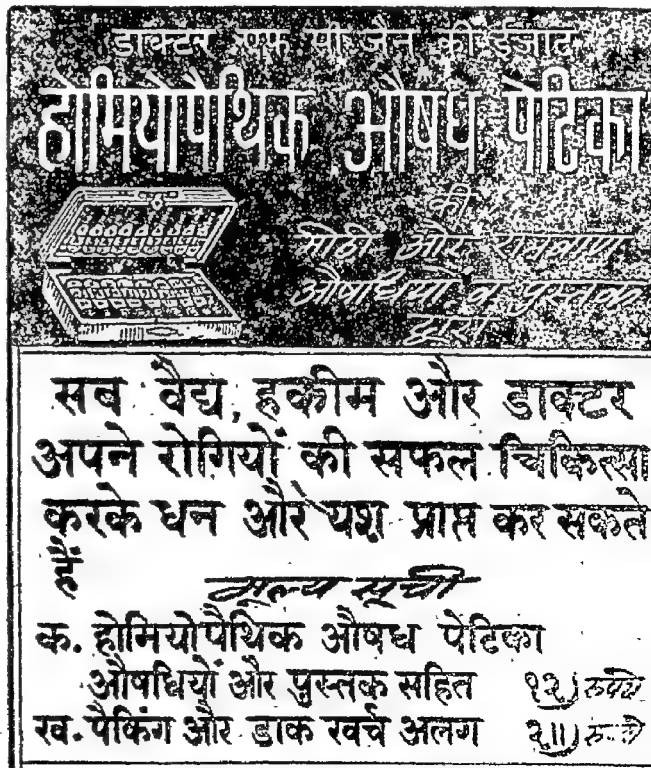 डाक्टर एफ पी जैन की ईजाद
होमियोपैथिक औषध पेटिका
की
मीठी और रामबाण
औषधियों व पुस्तक
द्वारा
सब वैद्य, हकीम और डाक्टर
अपने रोगियों की सफल चिकित्सा
करके धन और यश प्राप्त कर सकते
हैं
मूल्य सूची
क. होमियोपैथिक औषध पेटिका
औषधियों और पुस्तक सहित १२) रुपये
ख. पैकिंग और डाक खर्च अलग २॥) रुपये